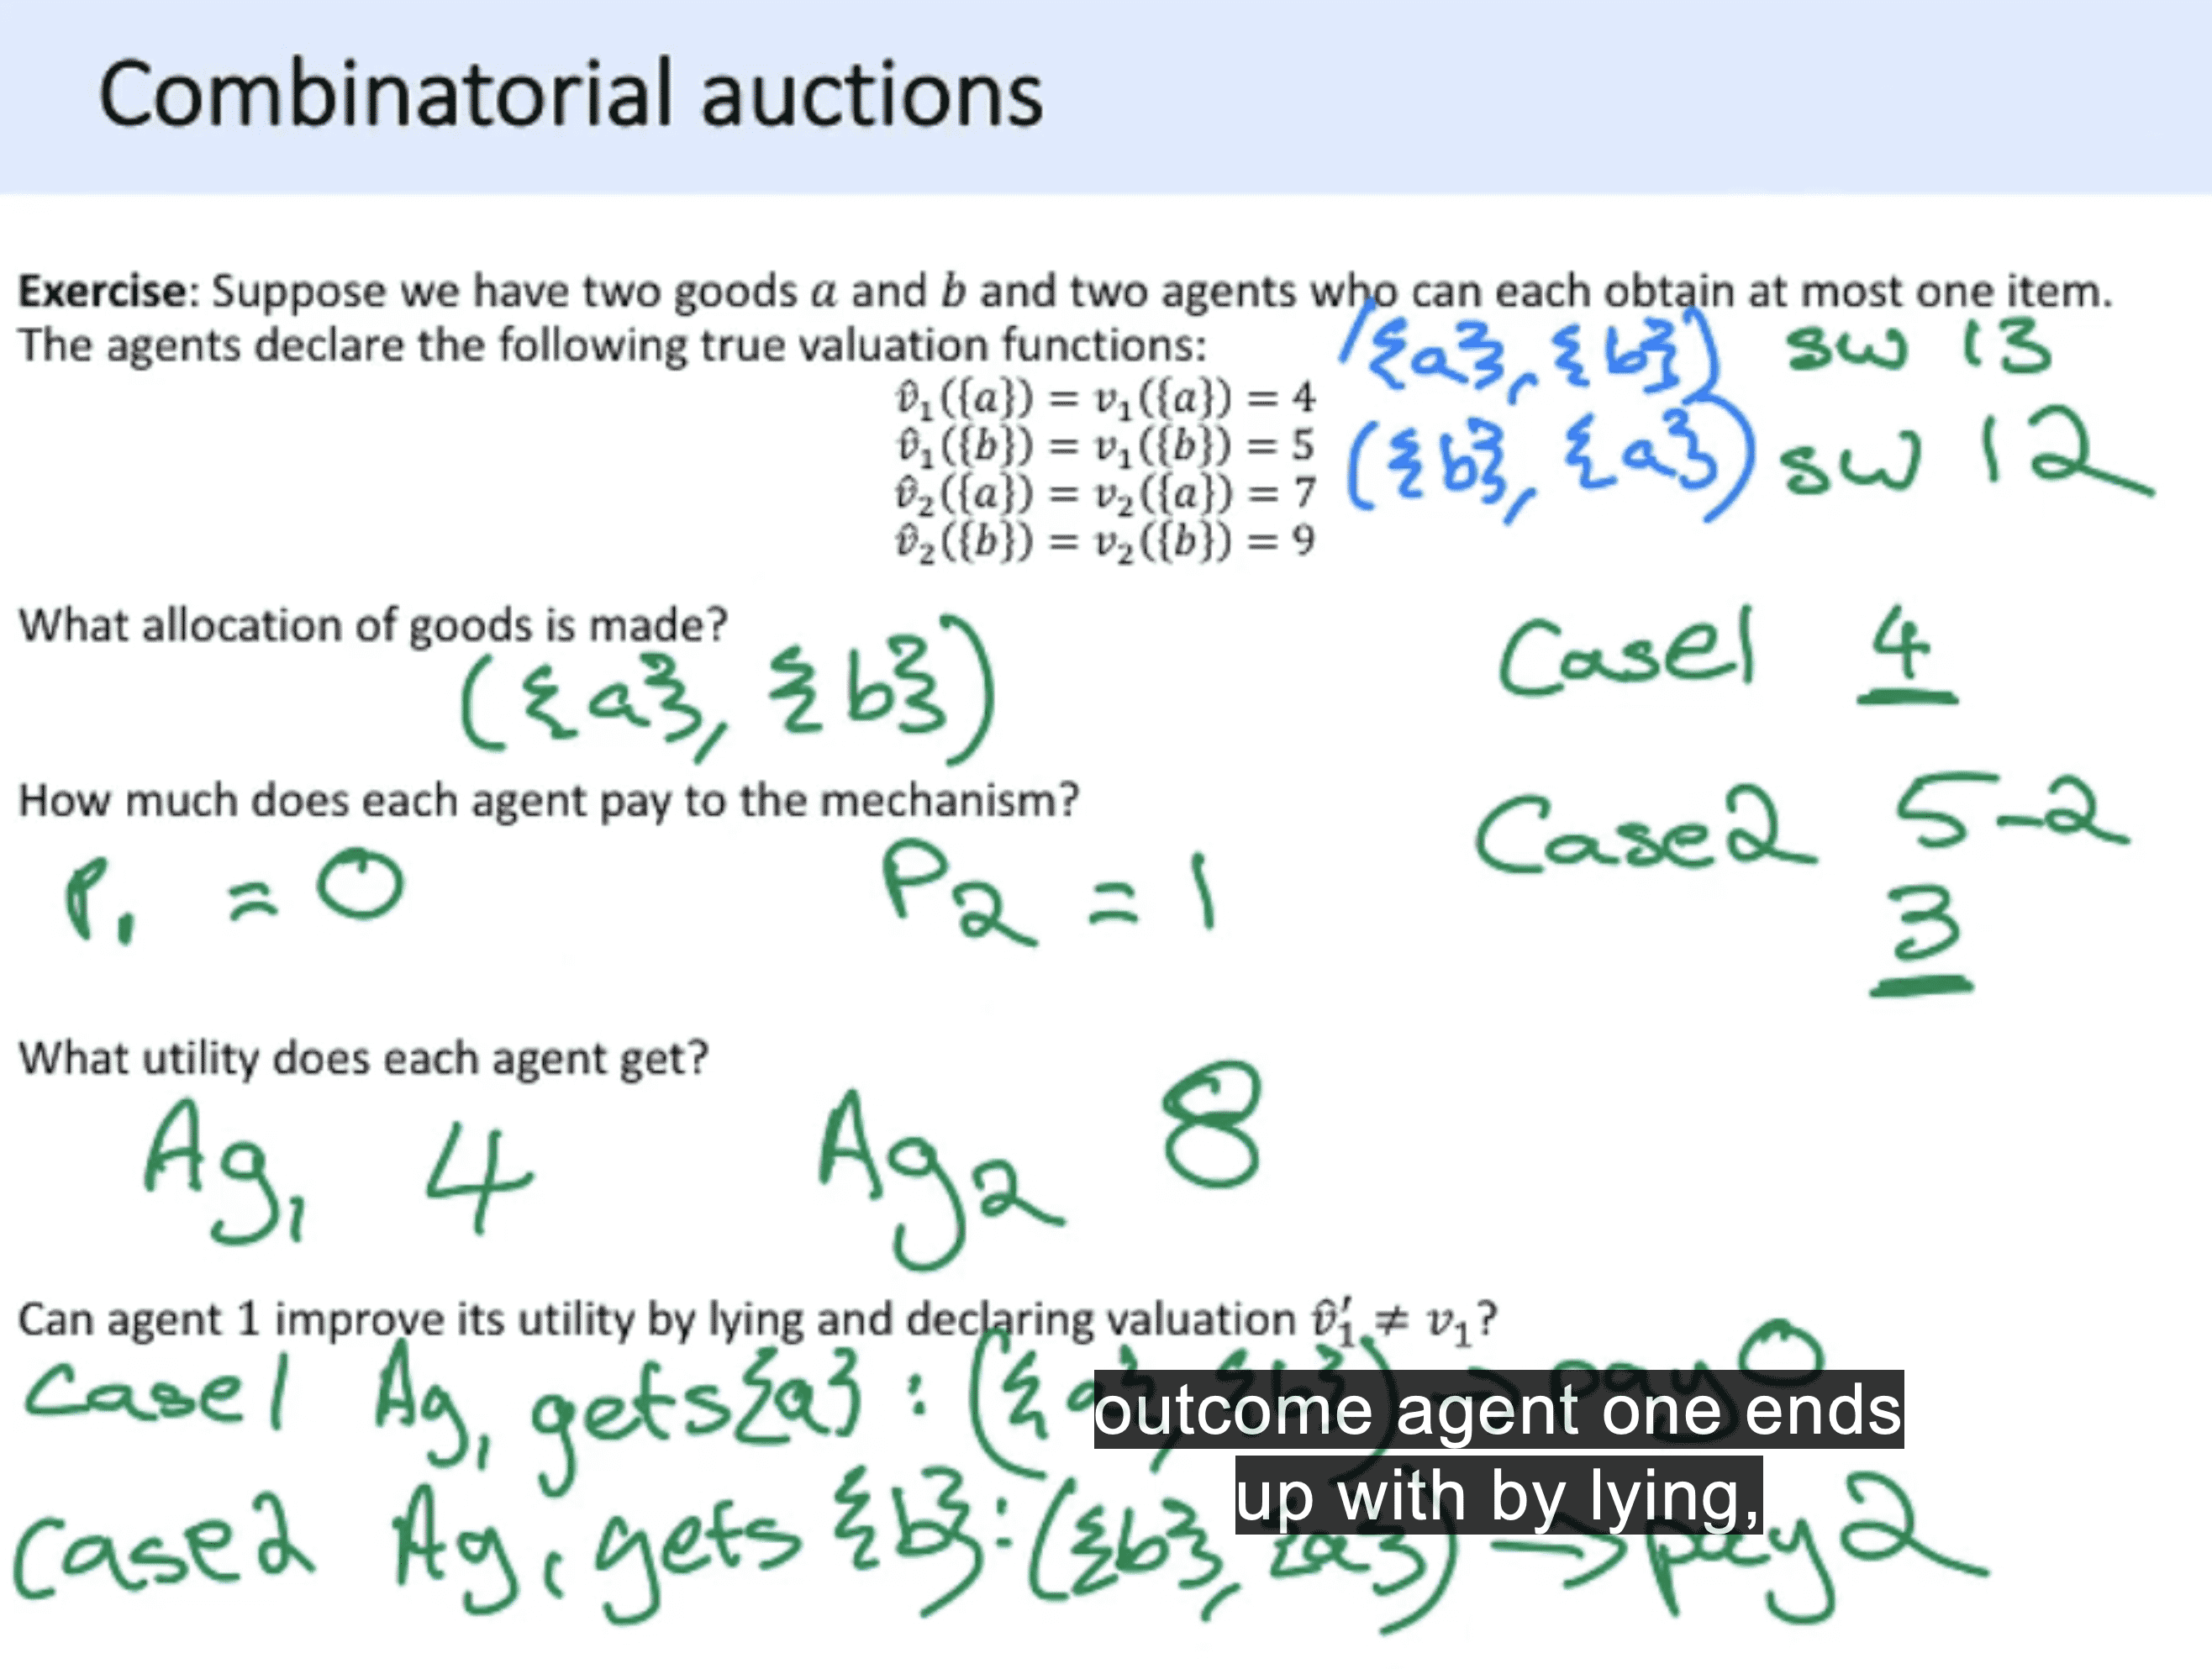 Combinatorial auctions
Exercise: Suppose we have two goods a and b and two agents who can each obtain at most one item.
The agents declare the following true valuation functions:
({a}, {b}) sw 13
v̂₁({a}) = v₁({a}) = 4
v̂₁({b}) = v₁({b}) = 5
({b}, {a}) sw 12
v̂₂({a}) = v₂({a}) = 7
v̂₂({b}) = v₂({b}) = 9
What allocation of goods is made?
({a}, {b})
Case1 4
How much does each agent pay to the mechanism?
P₁ = 0 P₂ = 1
Case2 5-2
3
What utility does each agent get?
Ag₁ 4 Ag₂ 8
Can agent 1 improve its utility by lying and declaring valuation v̂′₁ ≠ v₁?
Case1 Ag₁ gets {a} : ({a}, {b}) → pay 0
outcome agent one ends
up with by lying,
Case2 Ag₁ gets {b} : ({b}, {a}) → pay 2